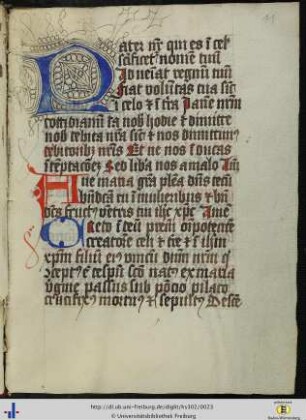 Pater nr qui es i cel
scificet nomē tuū
Adueiat regnū tuū
fiat volūtas tua sic
i celo ⁊ i tra Panē nrm
cottidianū da nob hodie ⁊ dimitte
nob debita nra sic ⁊ nos dimittim⁹
debitorib⁹ nris Et ne nos iducas
i teptacōeʒ Sed liba nos a malo Am
Aue maria gra plena dūs tecū
bn̄dcā tu i mulierib⁹ ⁊ bn̄
dc̄s fruct⁹ vētris tui ihs xpc Ame
Credo i deū prem oīpotente
creatorē celi ⁊ tre ⁊ i ihm
xpm filiū ei⁹ vnicū dūm nrm q
cōcept⁹ ē de spū scō nat⁹ ex maria
vgīne passus sub pōcio pilato
crucifix⁹ mortu⁹ ⁊ sepult⁹ Desce
http://dl.ub.uni-freiburg.de/diglit/hs302/0023
© Universitätsbibliothek Freiburg